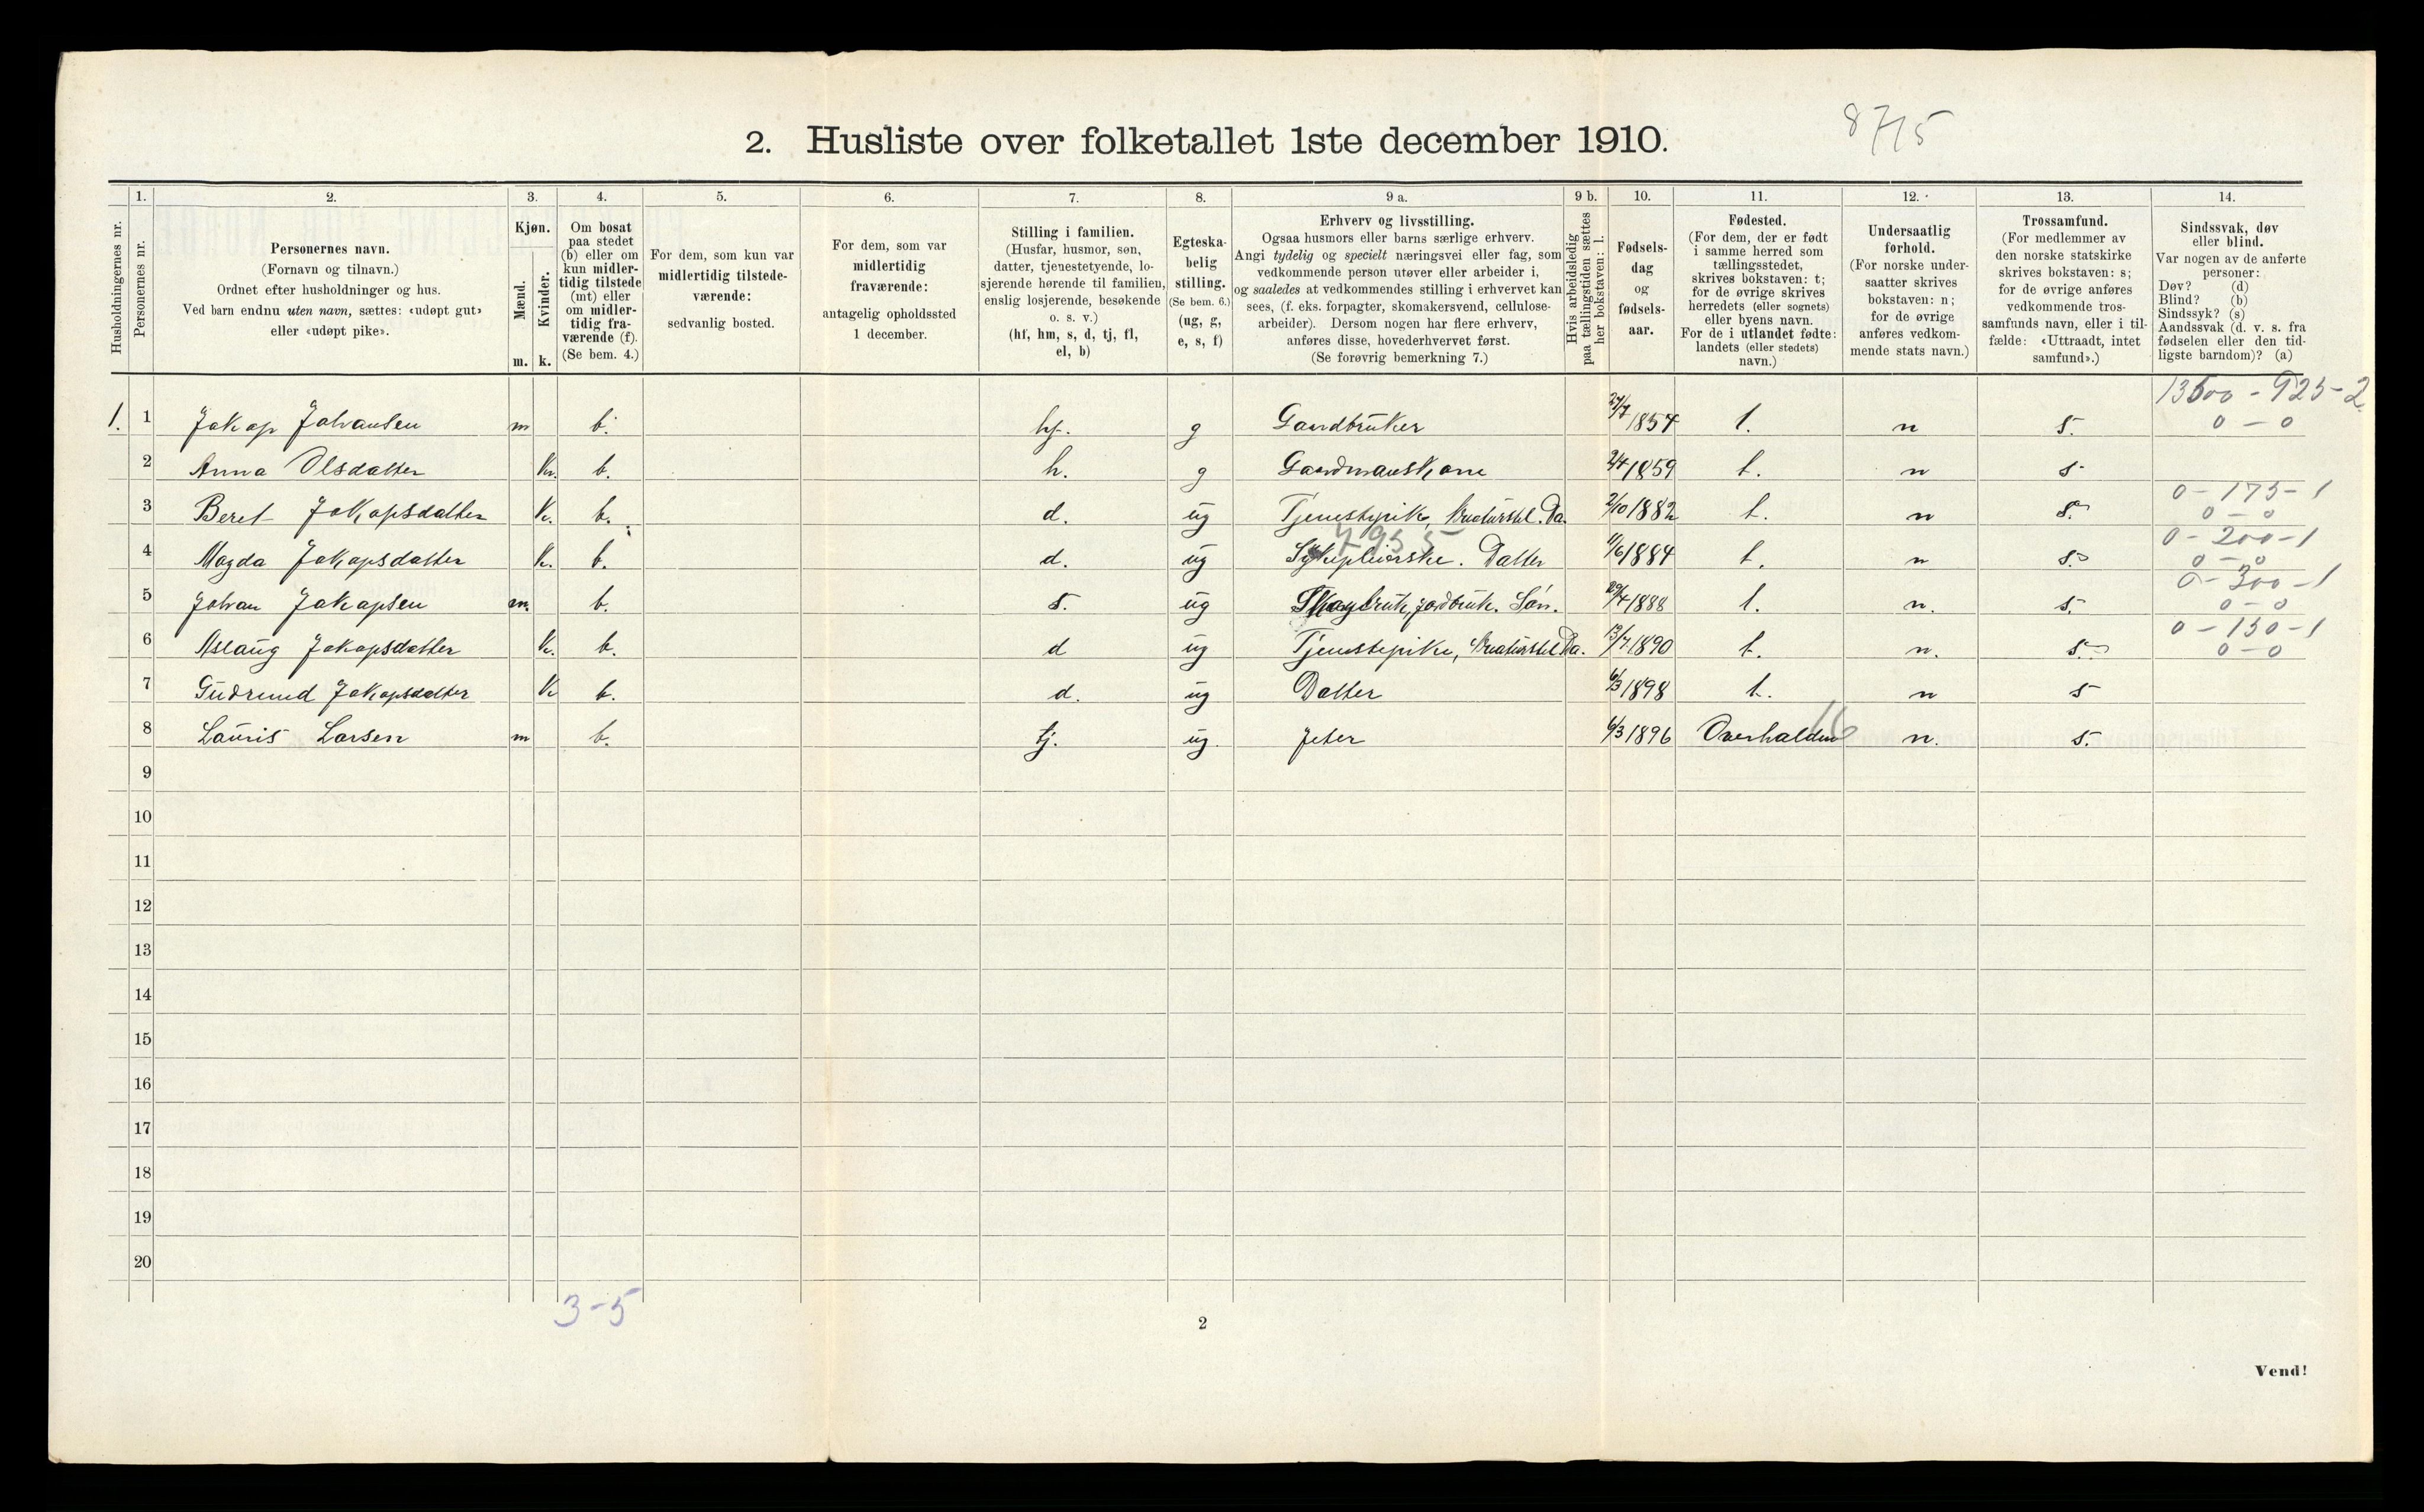 8715
2. Husliste over folketallet 1ste december 1910.
Husholdningernes nr.
1.
Personernes nr.
2.
Personernes navn.
(Fornavn og tilnavn.)
Ordnet efter husholdninger og hus.
Ved barn endnu uten navn, sættes: «udøpt gut»
eller «udøpt pike».
3.
Kjøn.
Mænd.
Kvinder.
m. k.
4.
Om bosat
paa stedet
(b) eller om
kun midler-
tidig tilstede
(mt) eller
om midler-
tidig fra-
værende (f).
(Se bem. 4.)
5.
For dem, som kun var
midlertidig tilstede-
værende:
sedvanlig bosted.
6.
For dem, som var
midlertidig
fraværende:
antagelig opholdssted
1 december.
7.
Stilling i familien.
(Husfar, husmor, søn,
datter, tjenestetyende, lo-
sjerende hørende til familien,
enslig losjerende, besøkende
o. s. v.)
(hf, hm, s, d, tj, fl,
el, b)
8.
Egteska-
belig
stilling.
(Se bem. 6.)
(ug, g,
e, s, f)
9 a.
Erhverv og livsstilling.
Ogsaa husmors eller barns særlige erhverv.
Angi tydelig og specielt næringsvei eller fag, som
vedkommende person utøver eller arbeider i,
og saaledes at vedkommendes stilling i erhvervet kan
sees, (f. eks. forpagter, skomakersvend, cellulose-
arbeider). Dersom nogen har flere erhverv,
anføres disse, hovederhvervet først.
(Se forøvrig bemerkning 7.)
9 b.
Hvis arbeidsledig
paa tællingstiden sættes
her bokstaven: l.
10.
Fødsels-
dag
og
fødsels-
aar.
11.
Fødested.
(For dem, der er født
i samme herred som
tællingsstedet,
skrives bokstaven: t;
for de øvrige skrives
herredets (eller sognets)
eller byens navn.
For de i utlandet fødte:
landets (eller stedets)
navn.)
12.
Undersaatlig
forhold.
(For norske under-
saatter skrives
bokstaven: n;
for de øvrige
anføres vedkom-
mende stats navn.)
13.
Trossamfund.
(For medlemmer av
den norske statskirke
skrives bokstaven: s;
for de øvrige anføres
vedkommende tros-
samfunds navn, eller i til-
fælde: «Uttraadt, intet
samfund».)
14.
Sindssvak, døv
eller blind.
Var nogen av de anførte
personer:
Døv? (d)
Blind? (b)
Sindssyk? (s)
Aandssvak (d. v. s. fra
fødselen eller den tid-
ligste barndom)? (a)
13500 - 925-2
1. 1 Jakop Johansen m b. hf. g Gardbruker 1857 t. n s. 0 - 0
2 Anna Olsdatter k. b. h. g Gardmanskone 2/4 1859 t. n s
0 - 175 - 1
3 Beret Jakopsdatter k. b. d. ug Tjenestepike, Kreaturstel. Da. 2/10 1882 t. n s. 0 - 0
7955 0 - 200 - 1
4 Magda Jakopsdatter k. b. d. ug Sykepleiorske. Datter 1884 t. n s. 0 - 0
0 - 300 - 1
5 Johan Jakopsen m. b. s. ug Skogbruk, jordbruk. Søn. 29/4 1888 t. n. s. 0 - 0
0 - 150 - 1
6 Aslaug Jakopsdatter k. b. d ug Tjenestepike, Kreaturstel Da. 13/7 1890 t. n. s. 0 - 0
7 Gudrund Jakopsdatter k b. d. ug Datter 6/3 1898 t. n s
16
8 Lauris Larsen m b. tj. ug. Jeter 6/3 1896 Overhalden n. s.
9
10
11
12
13
14
15
16
17
18
19
20
3-5
2
Vend!